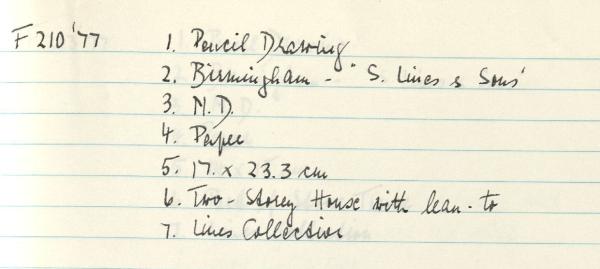 F210'77 1. Pencil Drawing
2. Birmingham - "S. Lines & Sons'
3. N.D.
4. Paper
5. 17. x 23.3 cm
6. Two-Storey House with lean-to
7. Lines Collection